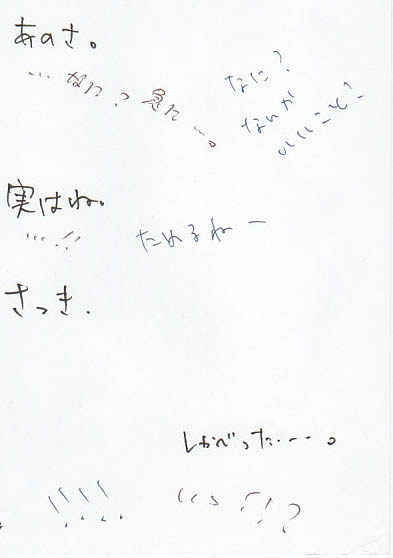 あのさ。
…なに?急に…。
なに?
なんか
いいこと?
実はね。
…!!
ためるねー
さっき.
しゃべった‥‥。
!!!!
!!?